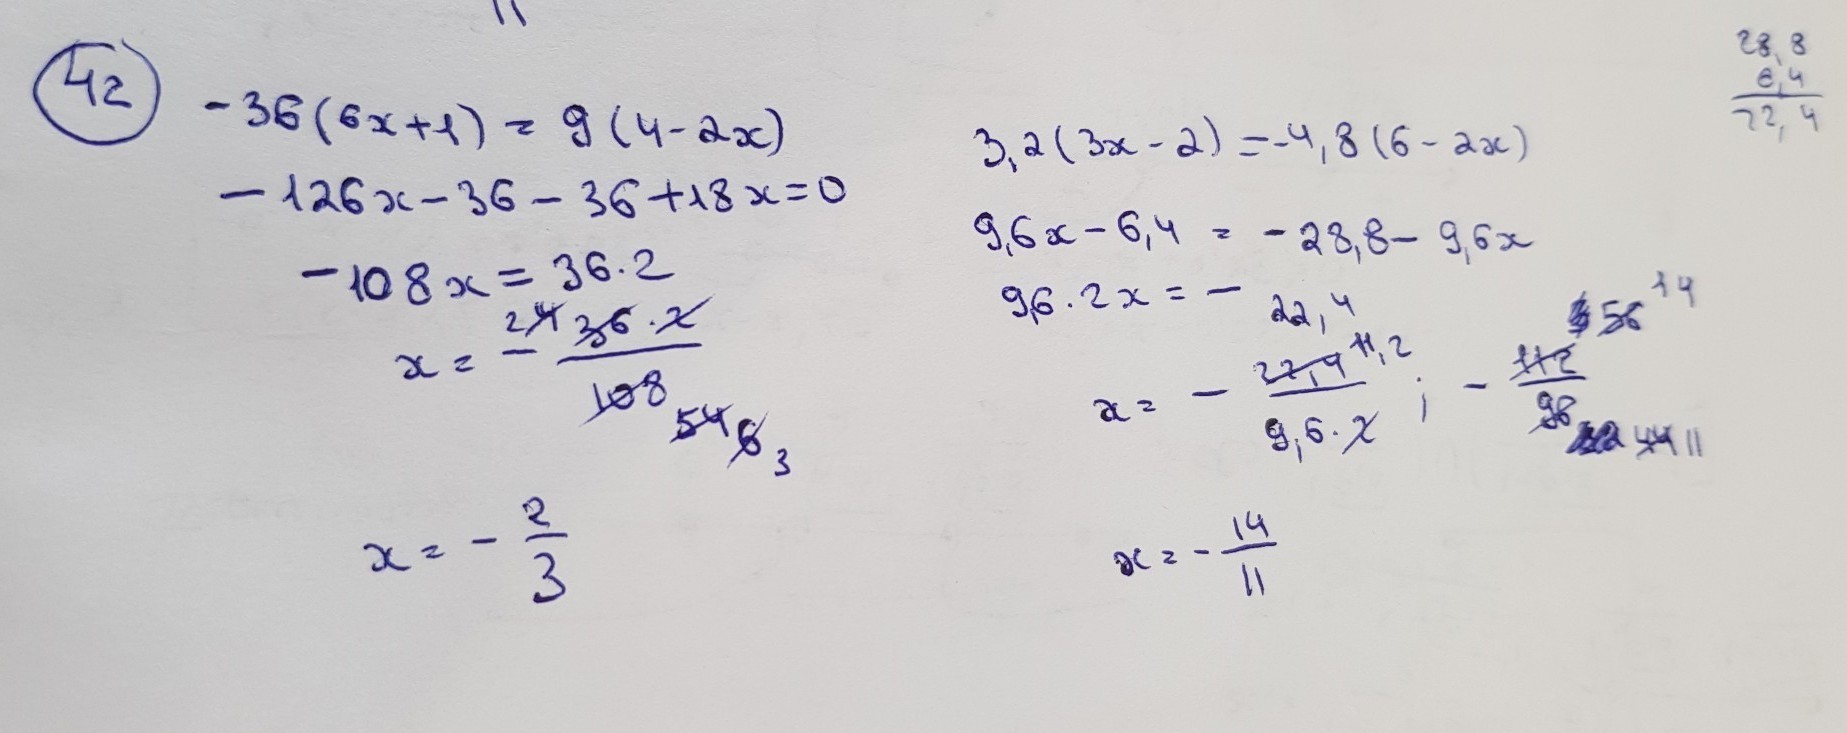 42
-36(6x+1) = 9(4-2x)
-126x-36-36+18x=0
-108x=36·2
x = - 24 36·2 / 108 54 6 3
x = - 2/3
3,2(3x-2)=-4,8(6-2x)
9,6x-6,4 = -28,8-9,6x
9,6·2x = - 22,4
x = - 22,4 11,2 / 9,6·2 ; - 112 56 14 / 96 44 11
x = - 14/11
28,8
6,4
22,4